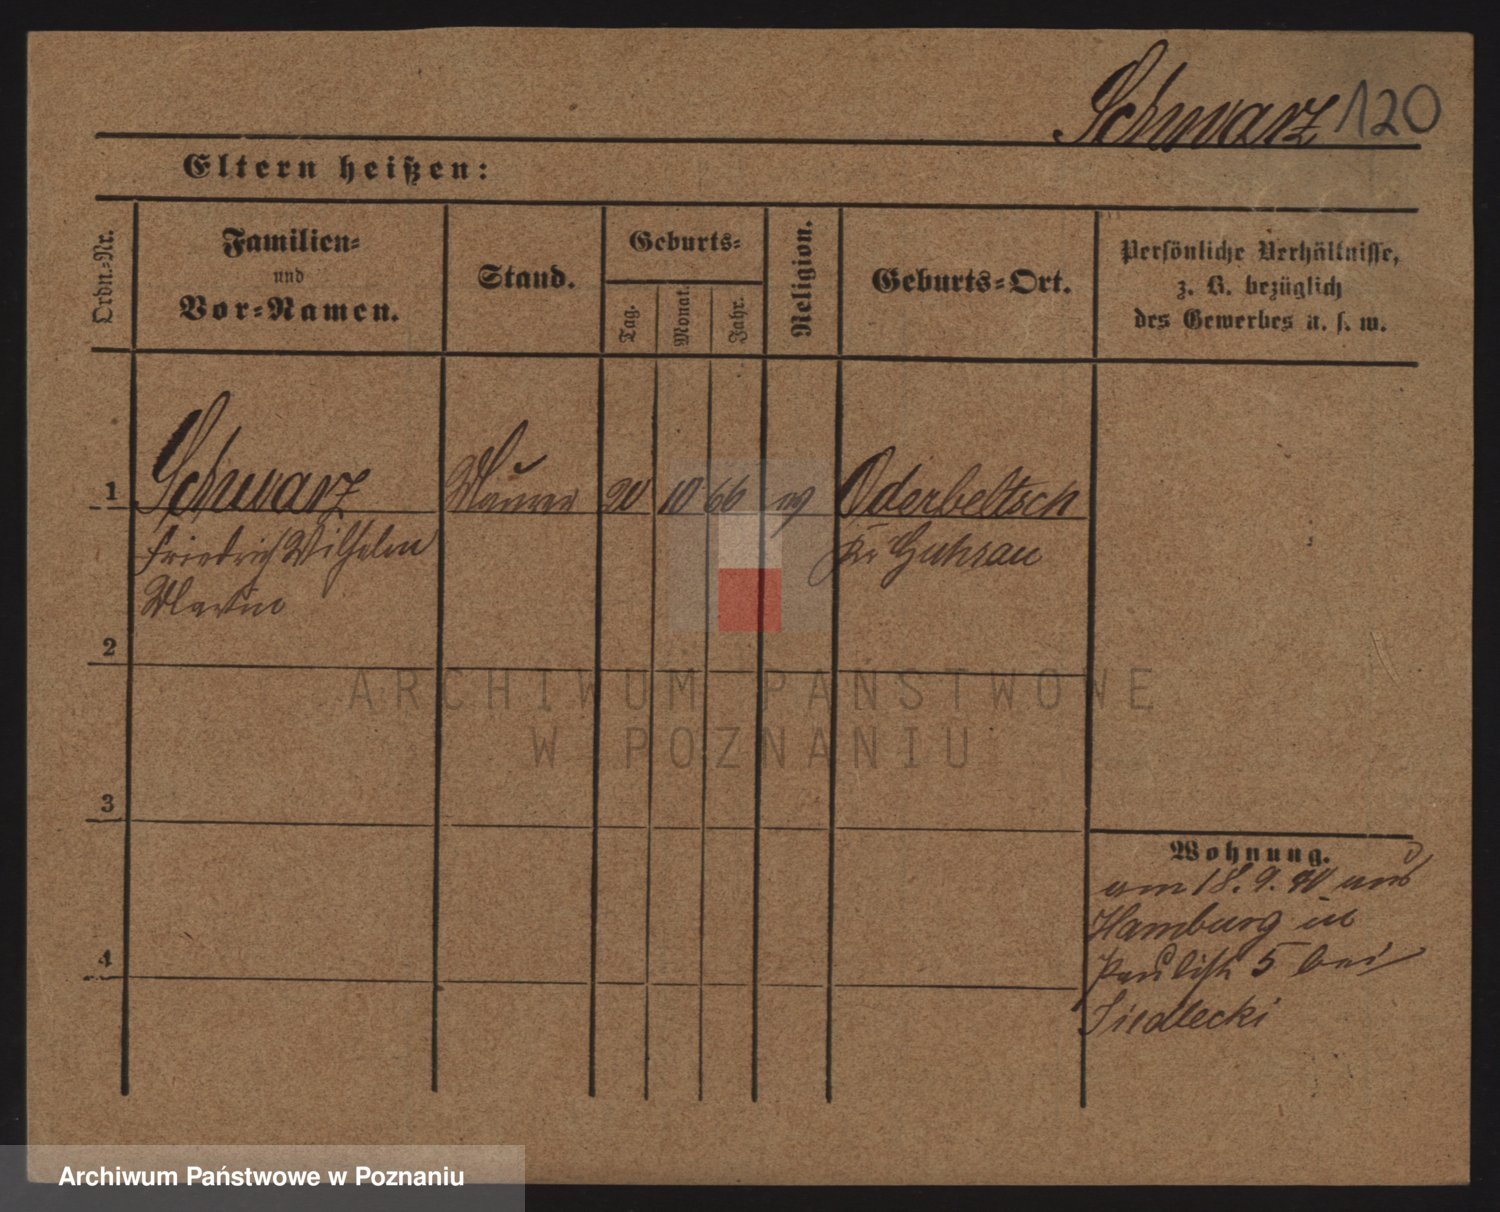 Schwarz 120
Eltern heißen:
Ordn.-Nr.
Familien-
und
Vor-Namen.
Stand.
Geburts-
Tag.
Monat.
Jahr.
Religion.
Geburts-Ort.
Persönliche Verhältnisse,
z. B. bezüglich
des Gewerbes u. s. w.
1 Schwarz Maurer 20 10 66 ev Oderbeltsch
Friedrich Wilhelm Kr Guhrau
Martin
2
ARCHIWUM PAŃSTWOWE
W POZNANIU
3
Wohnung.
am 18. 9. 90 aus
Hamburg in
Paulistr 5 bei
4
Siedlecki
Archiwum Państwowe w Poznaniu